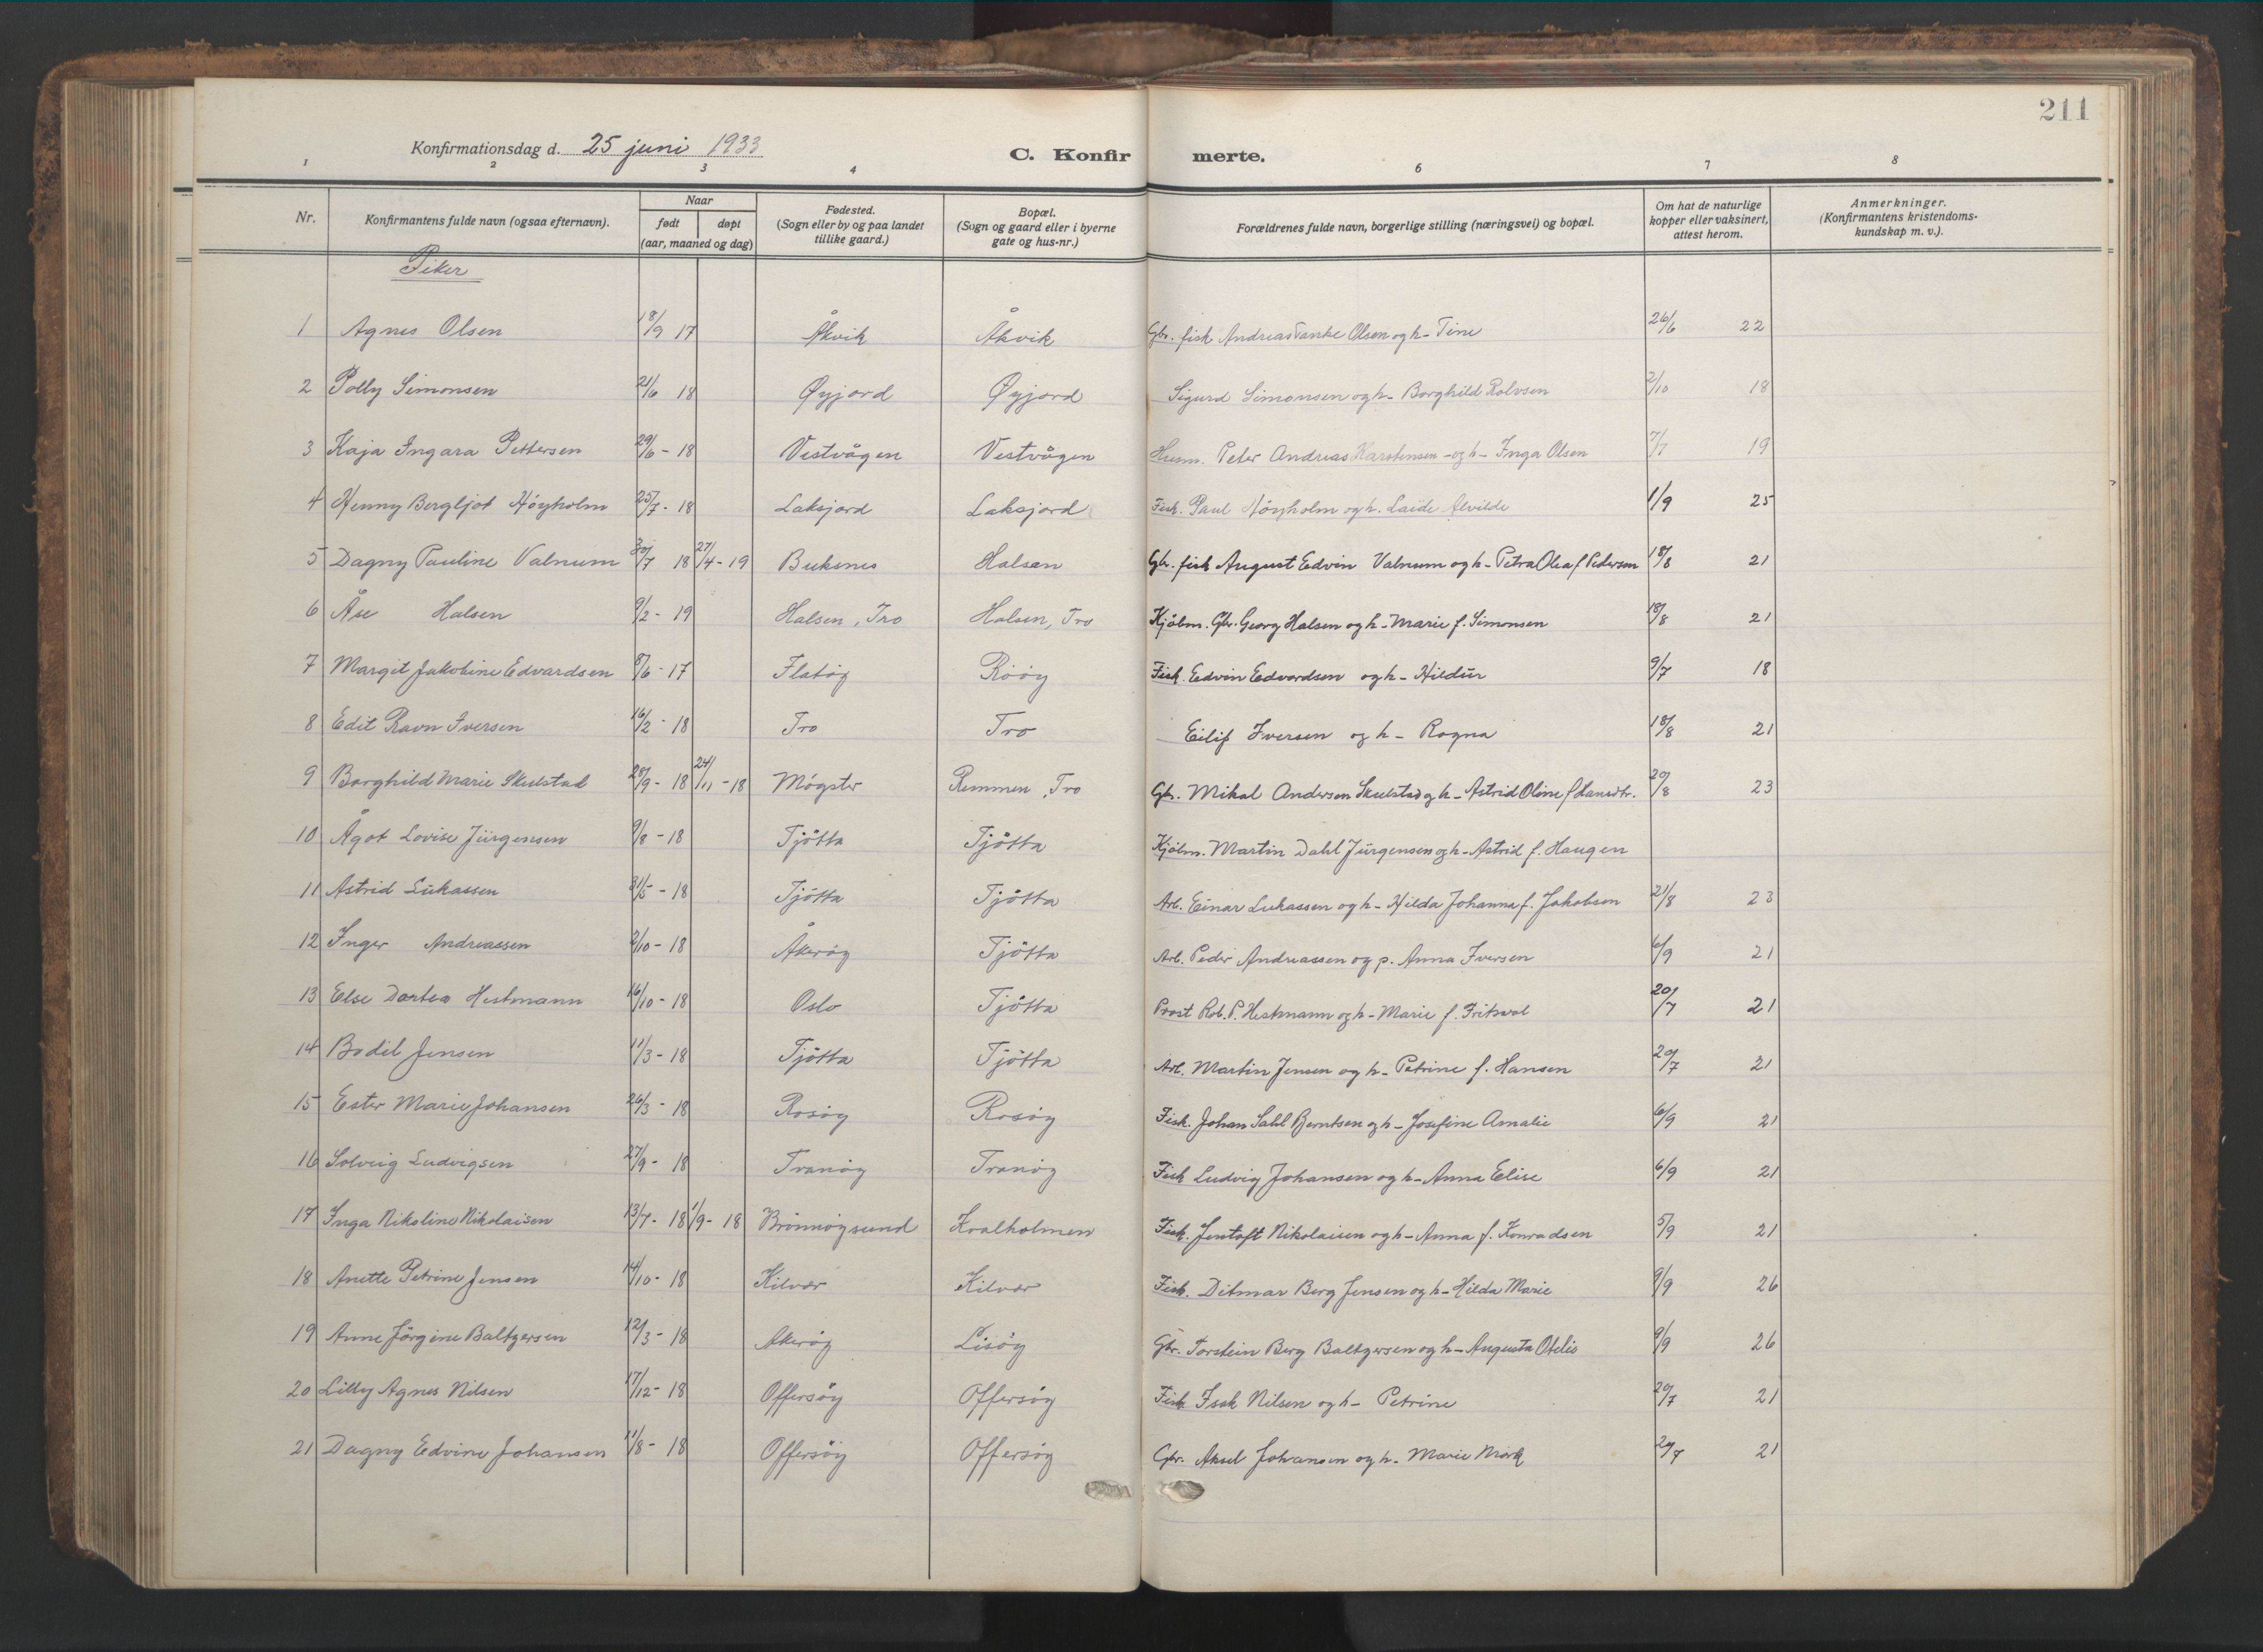 211
Konfirmationsdag d. 25 juni 1933
C. Konfir merte.
1 2 3 4 6 7 8
Nr. Konfirmantens fulde navn (ogsaa efternavn). Naar født døpt (aar, maaned og dag) Fødested. (Sogn eller by og paa landet tillike gaard.) Bopæl. (Sogn og gaard eller i byerne gate og hus-nr.) Forældrenes fulde navn, borgerlige stilling (næringsvei) og bopæl. Om hat de naturlige kopper eller vaksinert, attest herom. Anmerkninger. (Konfirmantens kristendoms-kundskap m. v.).
Piker
1 Agnes Olsen 18/9 17 Åkvik Åkvik Gbr. fisk Andreas Tanke Olsen og h- Tine 26/6 22
2 Polly Simonsen 21/6 18 Øyjord Øyjord Sigurd Simonsen og h- Borghild Rolvsen 2/10 18
3 Kaja Ingara Pettersen 29/6 - 18 Vestvågen Vestvågen Husm. Peter Andreas Karstensen - og h- Inga Olsen 7/7 19
4 Henny Bergljot Höyholm 25/7 - 18 Laksjord Laksjord Fisk. Paul Höyholm og h. Laide Alvilde 1/9 25
5 Dagny Pauline Valnum 30/7 18 27/4 - 19 Buksnes Halsen Gbr. fisk August Edvin Valnum og h- Petra Olea f Pedersen 18/8 21
6 Åse Halsen 9/2 - 19 Halsen, Tro Halsen, Tro Kjöbm. Gbr. Georg Halsen og h- Marie f. Simonsen 18/8 21
7 Margit Jakobine Edvardsen 8/6 - 17 Flatöy Rööy Fisk. Edvin Edvardsen og h- Hildur 9/7 18
8 Edit Ravn Iversen 16/2 - 18 Tro Tro Eilif Iversen og h- Ragna 18/8 21
9 Borghild Marie Skulstad 28/9 - 18 24/11 - 18 Mögster Remmen, Tro Gbr. Mikal Andersen Skulstad og h- Astrid Oline f Hansdtr. 20/8 23
10 Ågot Lovise Jürgensen 9/8 - 18 Tjötta Tjötta Kjöbm. Martin Dahl Jürgensen og h- Astrid f. Haugen
11 Astrid Lukassen 31/5 - 18 Tjötta Tjötta Arb. Einar Lukassen og h- Hilda Johanna f. Jakobsen 21/8 23
12 Inger Andreassen 2/10 - 18 Åkeröy Tjötta Arb. Peder Andreassen og p. Anna Iversen 6/9 21
13 Else Dortea Hestmann 16/10 - 18 Oslo Tjötta Prost Rob. P. Hestmann og h- Marie f. 20/7 21
14 Bodil Jensen 11/3 - 18 Tjötta Tjötta Arb. Martin Jensen og h- Petrine f. Hansen 20/7 21
15 Ester Marie Johansen 26/3 - 18 Rosöy Rosöy Fisk. Johan Dahl Berntsen og h- Josefine Amalie 6/9 21
16 Solveig Ludvigsen 27/9 - 18 Tranöy Tranöy Fisk Ludvig Johansen og h- Anna Elise 6/9 21
17 Inga Nikoline Nikolaisen 13/7 - 18 1/9 - 18 Brönnöysund Kvalholmen Fisk. Jentoft Nikolaisen og h- Anna f. Konradsen 5/9 21
18 Anette Petrine Jensen 14/10 - 18 Kilvær Kilvær Fisk. Ditmar Berg Jensen og h- Hilda Marie 9/9 26
19 Anne Jörgine Baltzersen 12/3 - 18 Åkeröy Lisöy Gbr. Torstein Berg Baltzersen og h- Augusta Otelie 9/9 26
20 Lilly Agnes Nilsen 17/12 - 18 Offersöy Offersöy Fisk. Isak Nilsen og h- Petrine 20/7 21
21 Dagny Edvine Johansen 11/8 - 18 Offersöy Offersöy Gbr. Aksel Johansen og h. Marie Mörk 20/7 21